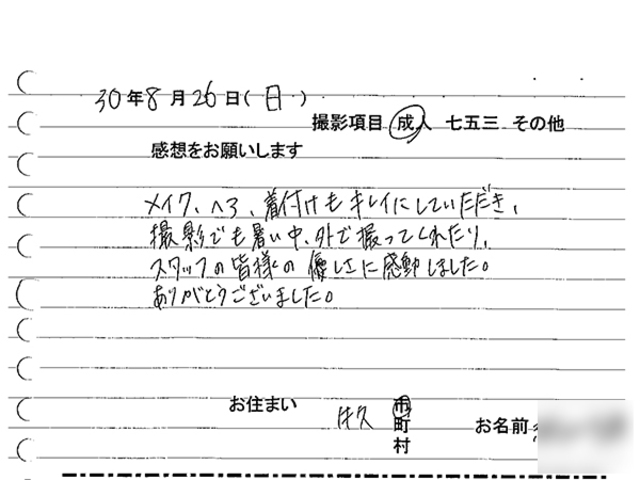 30年8月26日(日)
撮影項目 成人 七五三 その他
感想をお願いします
メイク、ヘア、着付けもキレイにしていただき、
撮影でも暑い中、外で撮ってくれたり、
スタッフの皆様の優しさに感動しました。
ありがとうございました。
お住まい 牛久 市
町
村
お名前